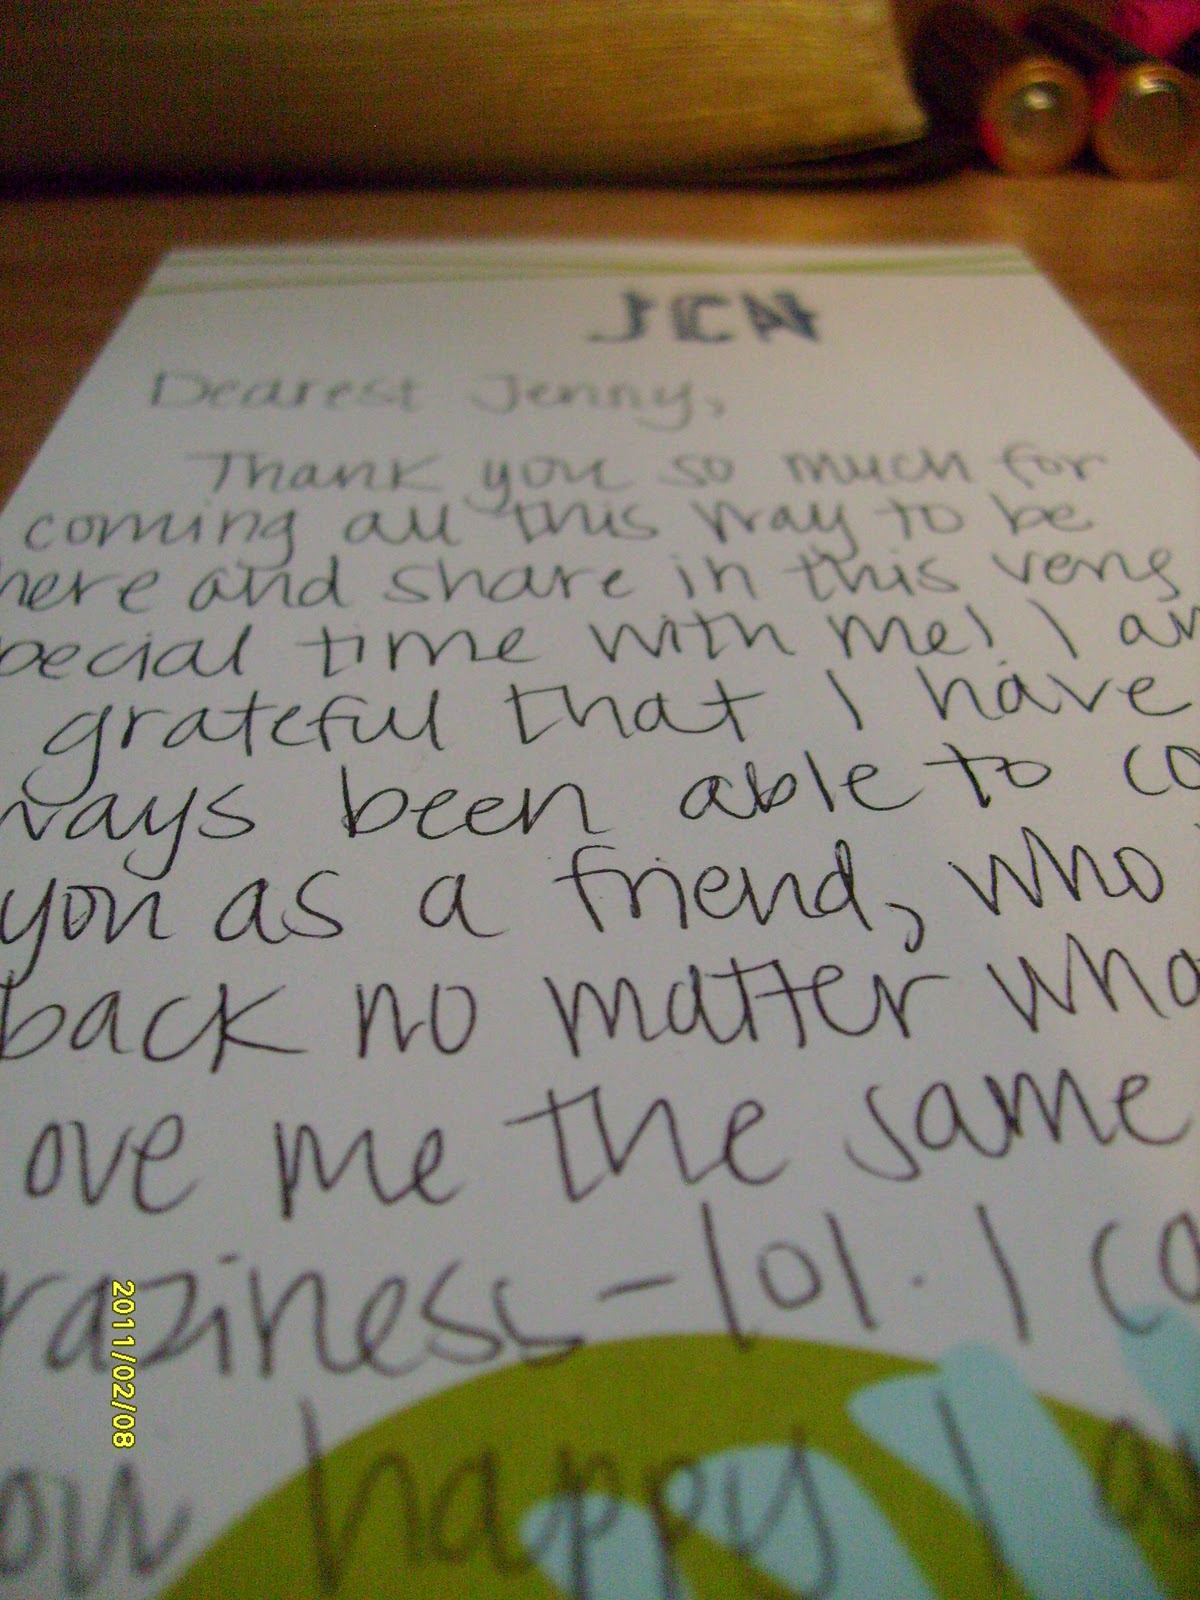 JCN
Dearest Jenny,
Thank you so much for
coming all this way to be
here and share in this very
pecial time with me! I am
grateful that I have
ways been able to co
you as a friend, who
back no matter wha
ove me the same
raziness - lol. I ca
ou happy I a
2011/02/08